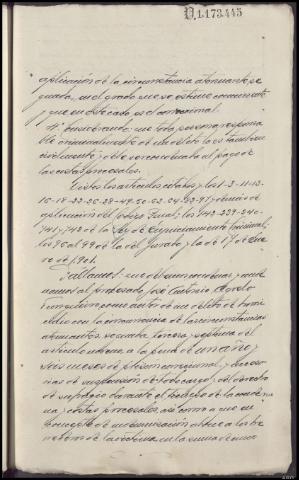 D.1.173.445
aplicación de la circunstancia atenuante se
gunda, en el grado que se estime conveniente
y que en este caso, es el correccional.
4º. Considerando: que toda persona responsa
ble criminalmente de un delito lo es tambien
civilmente y debe ser condenada al pago de
las costas procesales.
Vistos los artículos citados y los 1-3-11-13-
16-18-22-26-28-49-50-62-64-82-97 y demás de
aplicación del Código Penal; los 142-239-240-
741-742 de la Ley de Enjuiciamiento Criminal;
los 96 al 99 de la del Jurado y la de 17 de Ene
ro de 1.901.
Fallamos: que debemos condenar y conde
namos al procesado José
como autor de un delito de homi
cidio con la concurrencia de las circunstancias
atenuantes, segunda, tercera y septima del
artículo noveno a la pena de un año y
seis meses de prision correccional, y acceso
rias de suspensión de todo cargo y del derecho
de sufragio durante el tiempo de la conde
na y costas procesales, así como a que en
concepto de indemnización abone a los he
rederos de la víctima en la suma de cinco